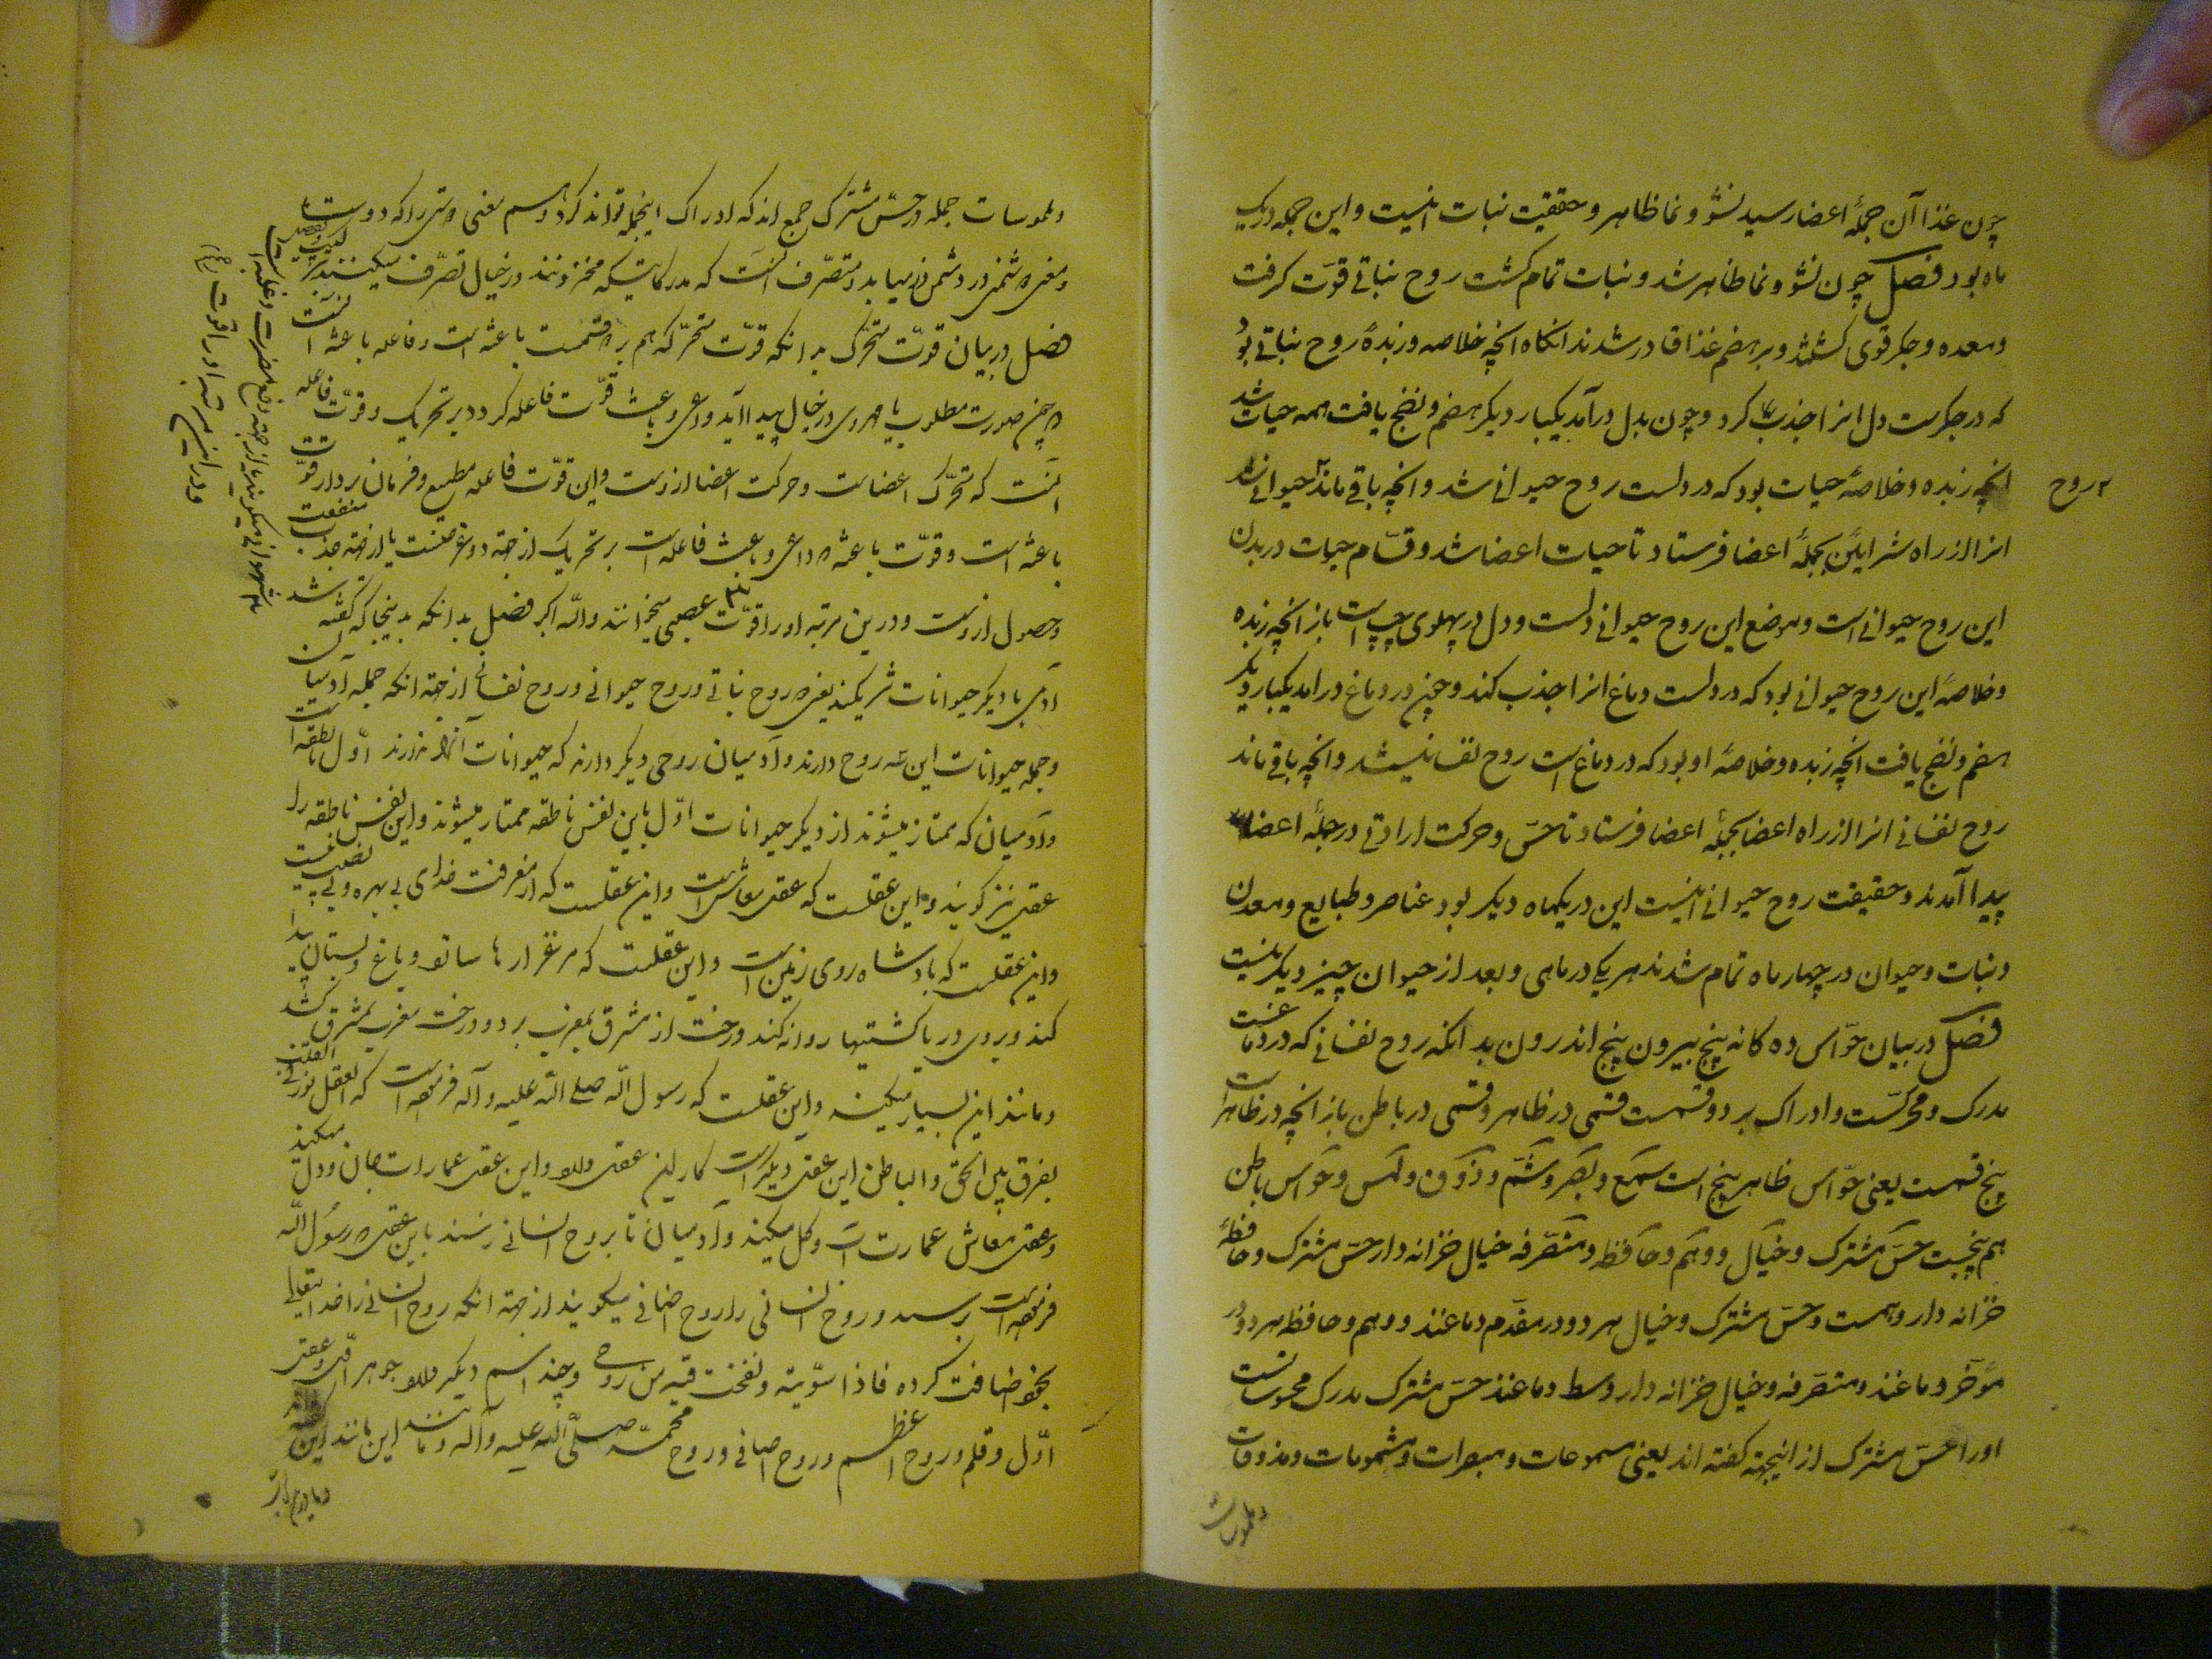 چون غذا آن جملهٔ اعضا رسید نشو و نما ظاهر و حقیقت نبات اینست و این جمله در یک
ماه بود فصل چون نشو و نما ظاهر شد و نبات تمام کشت روح نباتی قوت کرفت
و معده و جکر قوی کشتند و بر هضم غذا قادر شدند انکاه انچه خلاصه و زبدهٔ روح نباتی بود
که در جکرست دل انرا جذب کرد و چون بدل درآمد یکبار دیکر هضم و نضج یافت همه حیات شد
انچه زبده و خلاصهٔ حیات بود که در دلست روح حیوانی شد و انچه باقی ماند حیوانی شد
روح
انرا از راه شرایین بجملهٔ اعضا فرستاد تا حیات اعضا شد و قسّام حیات در بدن
این روح حیوانی است و موضع این روح حیوانی دلست و دل در پهلوی چپ است باز انچه زبده
و خلاصهٔ این روح حیوانی بود که در دلست دماغ انرا جذب کند و چون در دماغ درامد یکبار دیکر
هضم و نضج یافت انچه زبده و خلاصهٔ او بود که در دماغ است روح نفسانی شد و انچه باقی ماند
روح نفسانی انرا از راه اعضا بجملهٔ اعضا فرستاد تا حسّ و حرکت ارادتی در جملهٔ اعضا
پیدا آمدند و حقیقت روح حیوانی اینست این در یکماه دیکر بود عناصر و طبایع و معدن
و نبات و حیوان در چهار ماه تمام شدند هر یکی در ماهی و بعد از حیوان چیز دیکر نیست
فصل در بیان حوّاس ده کانه پنج بیرون پنج اندرون بدانکه روح نفسانی که در دماغست
مدرک و محرکست و ادراک بر دو قسمست قسمی در ظاهر و قسمی در باطن باز انچه در ظاهر است
پنج قسمست یعنی حوّاس ظاهر پنج است سمع و بصر و شمّ و ذوق و لمس و حوّاس باطن
هم پنجست حسّ مشترک و خیال و وهم و حافظه و متصّرفه خیال خزانه دار حسّ مشترک و حافظهٔ
خزانه دار وهمست و حسّ مشترک و خیال هر دو در مقدّم دماغند و وهم و حافظه هر دو در
مؤخّر دماغند و متصرّفه و خیال خزانه دار وسط دماغند حسّ مشترک مدرک محسوساتست
او را حسّ مشترک از اینجهة کفته اند یعنی مسموعات و مبصرات و مشمومات و مذوقات
و ملموسات
و ملموسات جمله در حسّ مشترک جمع اند که ادراک اینجمله تواند کرد و وهم معنی دوستی را که دوست
و معنی دشمنی در دشمن در میابد و متصرّف آنست که مدرکاتیکه مخزونند در خیال تصرّف میکند
فصل در بیان قوّت متحرّک بدانکه قوّت متحرّکه هم بر دو قسمست باعثه است و فاعله باعثه آنست
که چون صورت مطلوب یا مهروبی در خیال پیدا آید داعی و باعث قوّت فاعله کردد بر تحریک و قوّت فاعله
آنست که متحرّک اعضاست و حرکت اعضا ازوست و این قوّت فاعله مطیع و فرمان بردار قوّت
باعثه است و قوّت باعثه که داعی و باعث فاعله است بر تحریک از جهة دو غرضست یا از جهة جذب منفعت
و حصول ازوست و درین مرتبه او را قوّت عصبی میخوانند والله اکبر فصل بدانکه بدینجا که کفته شد
آدمی با دیکر حیوانات شریکند یعنی در روح نباتی و روح حیوانی و روح نفسانی از جهة انکه جمله آدمیان
و جمله حیوانات این سه روح دارند و آدمیان روحی دیکر دارند که حیوانات آنرا ندارند اوّل ناطقه است
و آدمیان که ممتاز میشوند از دیکر حیوانات اوّل باین نفس ناطقه ممتاز میشوند و این نفس ناطقه را
عقل نیز کویند و این عقلست که عقل معاش است و این عقلست که از معرفت خدای بی بهره و بی نصیبست
و این عقلست که بادشاه روی زمین است و این عقلست که مرغزارها سازد و باغ و بستان پیدا
کند و بروی دریا کشتیها روانه کند و رخت از مشرق بمغرب برد و درخت مغرب بمشرق کشد
و مانند این بسیار میکند و این عقلست که رسول الله صلی الله علیه و آله فرموده است که العقل نور فی القلب
یفرق بین الحق و الباطل این عقل دیکر است کمار این عقل و این عقل عمارات جان و دل میکند
و عقل معاش عمارت آب و کل میکند و آدمیان تا بروح انسانی نرسند باین عقل که رسول الله
فرموده است نرسد و روح انسانی را روح اضافی میکویند از جهة انکه روح انسانی را خدایتعالی
بخود اضافت کرده فاذا سوّیته و نفخت فیه من روحی و چند اسم دیکر جوهر اوّل و عقل
اوّل و قلم و روح اعظم و روح اضافی و روح محمّد صلّی الله علیه و آله و مانند این مانند این